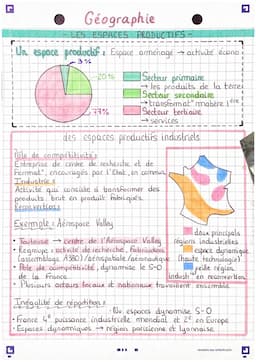 Géographie
- LES ESPACES PRODUCTIFS -
Un espace productif : Espace aménagé → activité écono
3%
20%
77%
Secteur primaire
→ les produits de la terre
Secteur secondaire
→ transformat° matière 1ère
Secteur tertiaire
→ services
des espaces productifs industriels
Pôle de compétitivité :
Entreprise de centre de recherche et de
Format°, encouragés par l'Etat, en commun
Industrie :
Activité qui consiste à transformer des
produits brut en produit fabriqués.
Reconversion
Exemple : Aérospace Valley
• Toulouse → centre de l'Aérospace Valley
• Regroupe → activité de recherche, fabrication
(assemblage A380) / aérospatiale / aéronautique
• Pôle de compétitivité, dynamise le S-O
de la France
• Plusieurs acteurs locaux et nationaux travaillent ensemble
deux principales
régions industrielles
espace dynamique
(haute technologie)
vieille région
industrielle en reconversion
Inégalité de répartition :
• Nv. espaces dynamise S-O
• France 4e puissance industrielle mondial et 2e en Europe
• Espaces dynamiques → région parisienne et lyonnaise